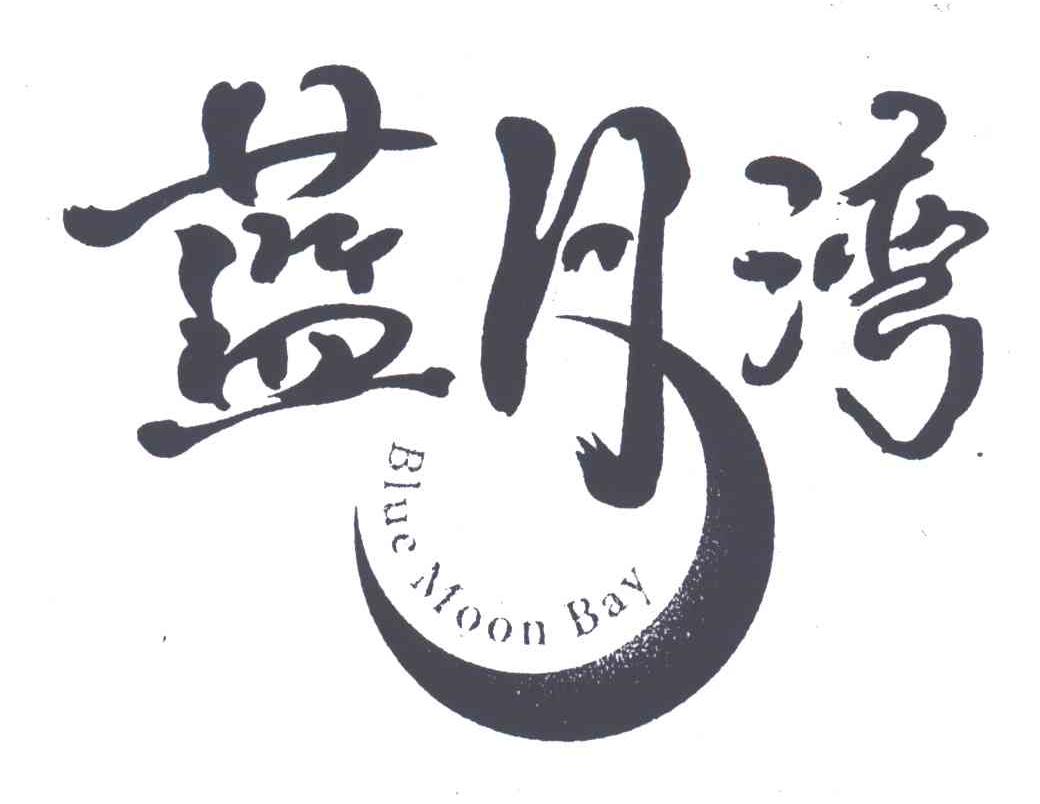 藍月湾
Blue Moon Bay